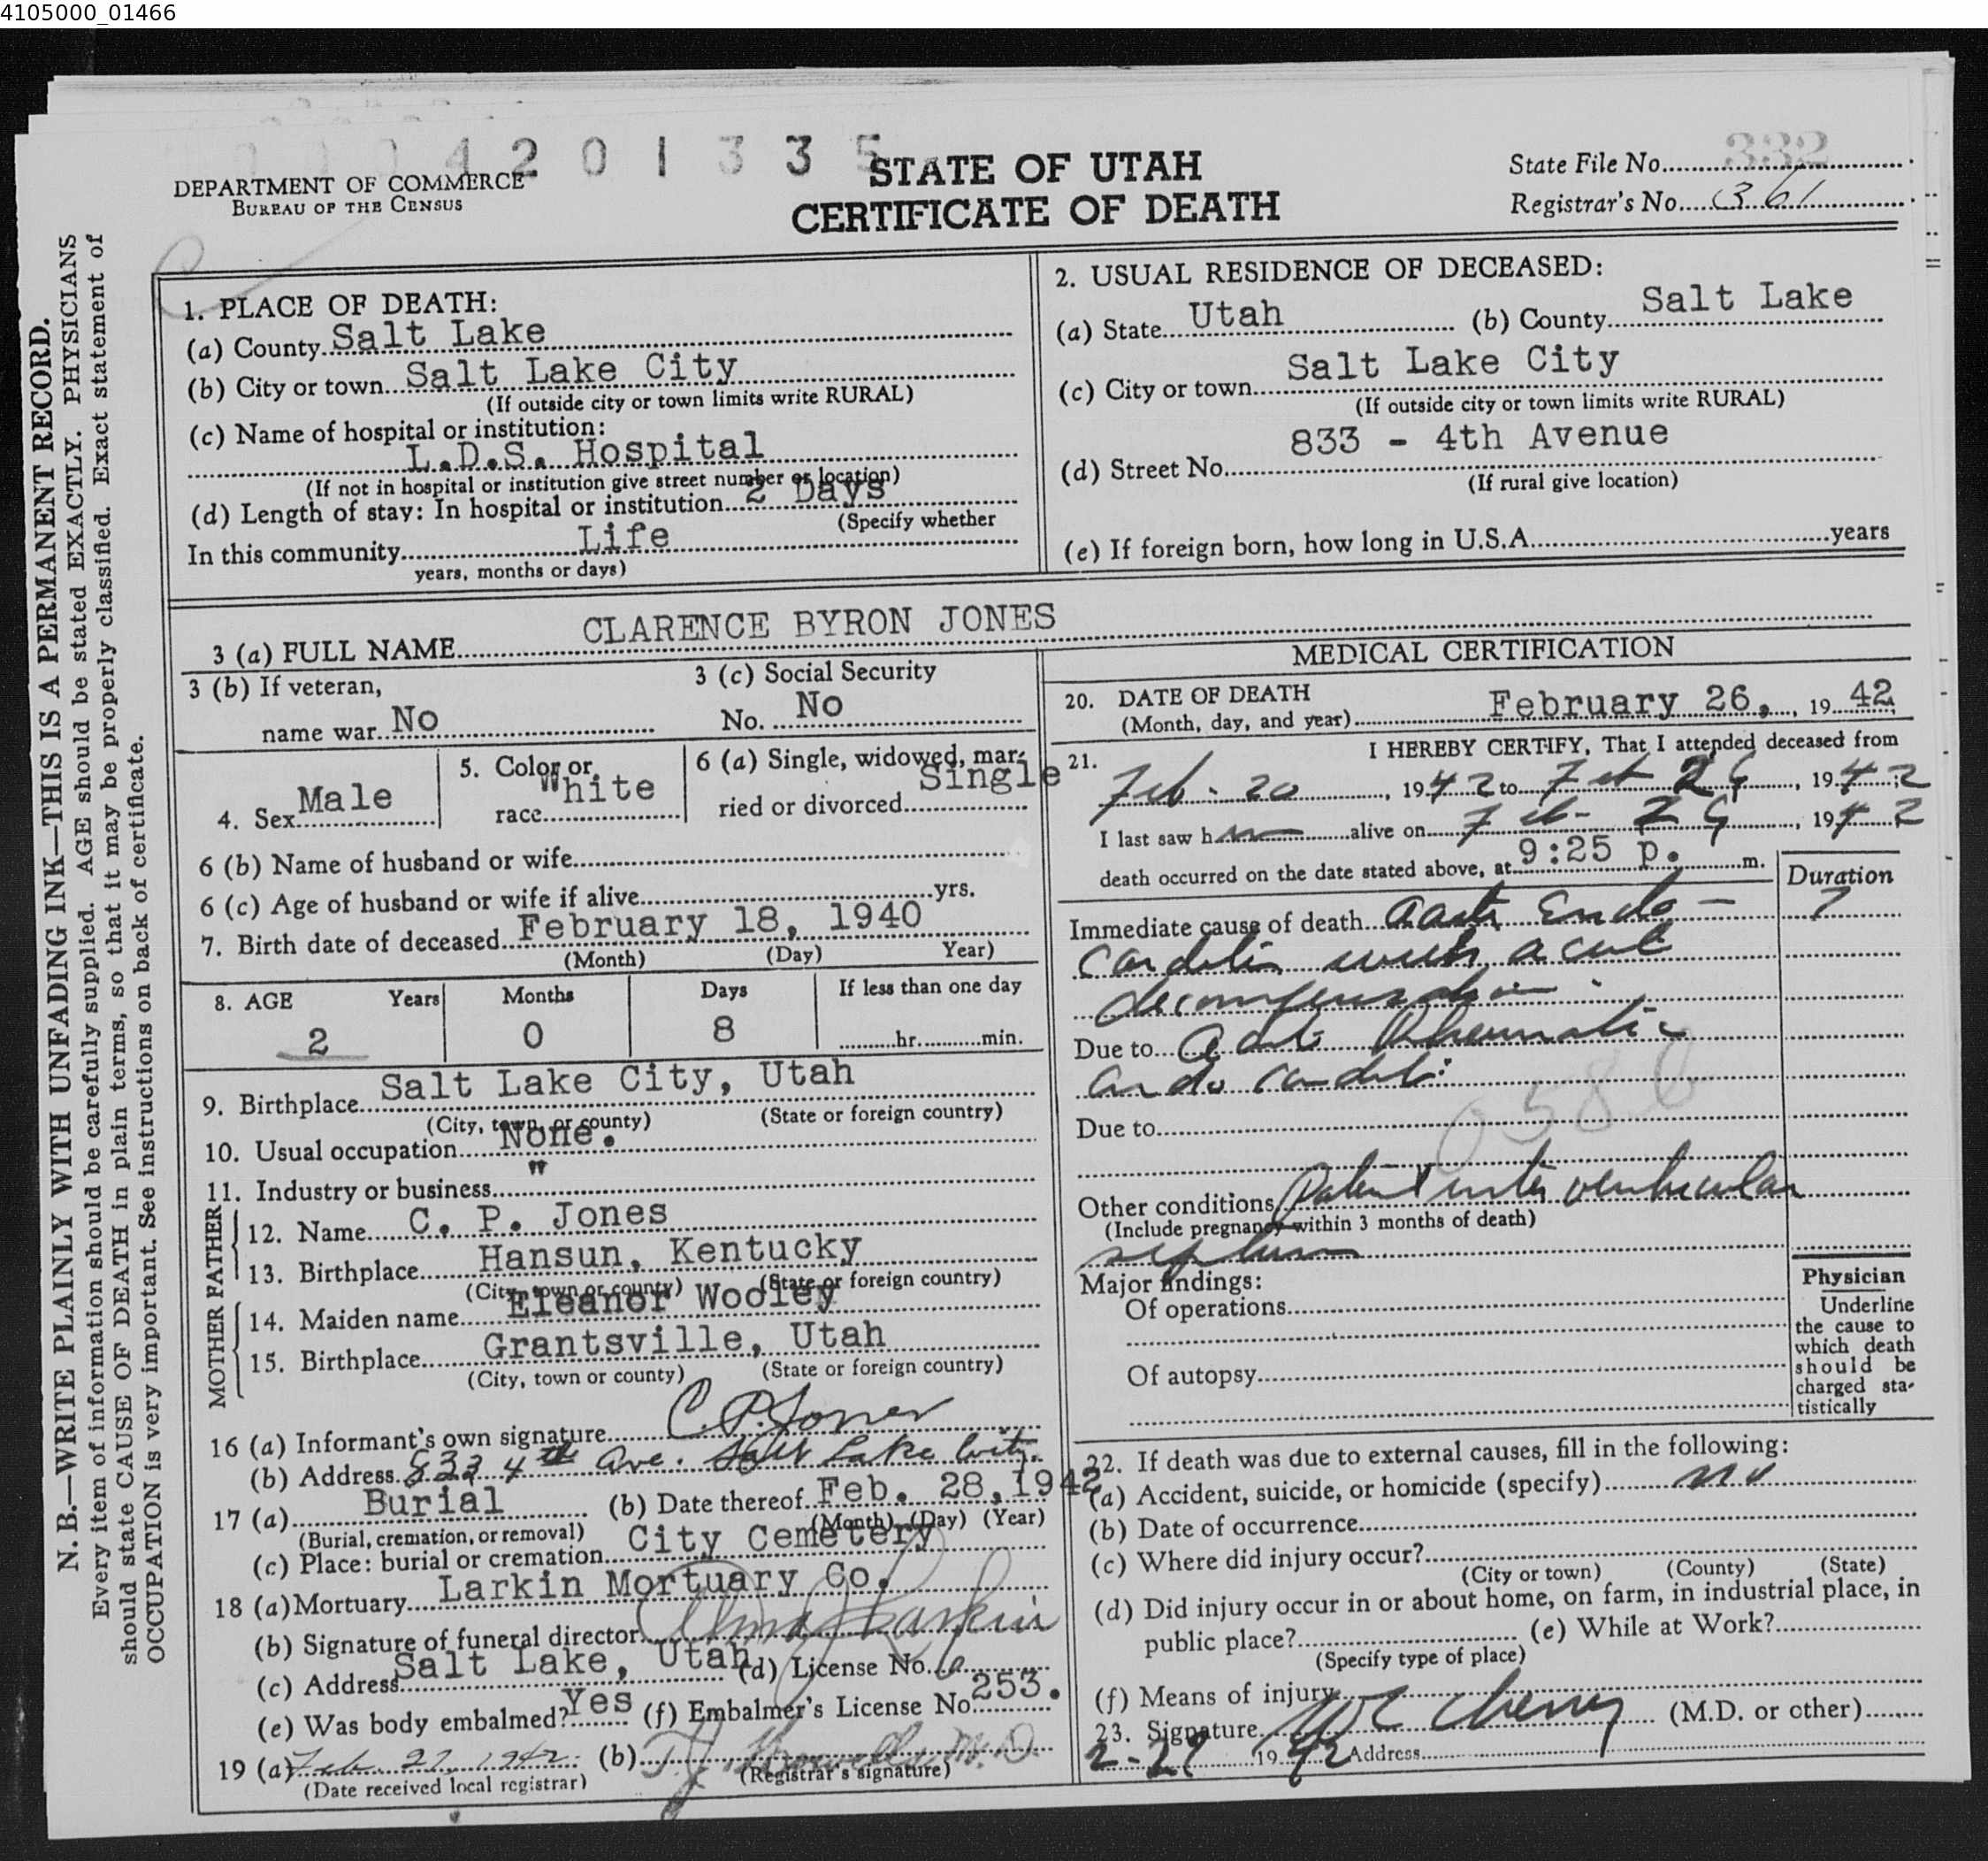 4105000_01466
4 2 0 1 3 3 5
DEPARTMENT OF COMMERCE
BUREAU OF THE CENSUS
STATE OF UTAH
CERTIFICATE OF DEATH
State File No. 332
Registrar's No. 361
N. B.—WRITE PLAINLY WITH UNFADING INK—THIS IS A PERMANENT RECORD.
Every item of information should be carefully supplied. AGE should be stated EXACTLY. PHYSICIANS
should state CAUSE OF DEATH in plain terms, so that it may be properly classified. Exact statement of
OCCUPATION is very important. See instructions on back of certificate.
1. PLACE OF DEATH:
(a) County Salt Lake
(b) City or town Salt Lake City
(If outside city or town limits write RURAL)
(c) Name of hospital or institution:
L.D.S. Hospital
(If not in hospital or institution give street number or location)
(d) Length of stay: In hospital or institution 2 Days
(Specify whether
In this community Life
years, months or days)
2. USUAL RESIDENCE OF DECEASED:
(a) State Utah (b) County Salt Lake
(c) City or town Salt Lake City
(If outside city or town limits write RURAL)
(d) Street No. 833 - 4th Avenue
(If rural give location)
(e) If foreign born, how long in U.S.A. years
3 (a) FULL NAME CLARENCE BYRON JONES
3 (b) If veteran,
name war No
3 (c) Social Security
No. No
4. Sex Male
5. Color or
race White
6 (a) Single, widowed, mar-
ried or divorced Single
6 (b) Name of husband or wife
6 (c) Age of husband or wife if alive yrs.
7. Birth date of deceased February 18, 1940
(Month) (Day) Year)
8. AGE Years Months Days If less than one day
2 0 8 hr. min.
9. Birthplace Salt Lake City, Utah
(City, town, or county) (State or foreign country)
10. Usual occupation None.
11. Industry or business "
FATHER
12. Name C. P. Jones
13. Birthplace Hansun, Kentucky
(City, town or county) (State or foreign country)
MOTHER
14. Maiden name Eleanor Wooley
15. Birthplace Grantsville, Utah
(City, town or county) (State or foreign country)
16 (a) Informant's own signature C. P. Jones
(b) Address 833 4th Ave. Salt Lake City.
17 (a) Burial (b) Date thereof Feb. 28, 1942
(Burial, cremation, or removal) (Month) (Day) (Year)
(c) Place: burial or cremation City Cemetery
18 (a) Mortuary Larkin Mortuary Co.
(b) Signature of funeral director Larkin
(c) Address Salt Lake, Utah (d) License No. 6
(e) Was body embalmed? Yes (f) Embalmer's License No. 253.
19 (a) Feb. 27, 1942. (b) M.D.
(Date received local registrar) (Registrar's signature)
MEDICAL CERTIFICATION
20. DATE OF DEATH
(Month, day, and year) February 26, , 19 42
21. I HEREBY CERTIFY, That I attended deceased from
Feb. 20 , 1942 to Feb 26 , 1942
I last saw him alive on Feb- 26 , 1942
death occurred on the date stated above, at 9:25 p. m.
Duration
Immediate cause of death Acute Endo- 7
carditis with acute
decompensation.
Due to Acute Rheumatic
endo carditis
058 0
Due to
Other conditions Patent inter ventricular
(Include pregnancy within 3 months of death)
septum
Major findings:
Of operations
Of autopsy
Physician
Underline
the cause to
which death
should be
charged sta-
tistically
22. If death was due to external causes, fill in the following:
(a) Accident, suicide, or homicide (specify) no
(b) Date of occurrence
(c) Where did injury occur?
(City or town) (County) (State)
(d) Did injury occur in or about home, on farm, in industrial place, in
public place? (e) While at Work?
(Specify type of place)
(f) Means of injury
23. Signature Cherry (M.D. or other)
2-27 1942 Address